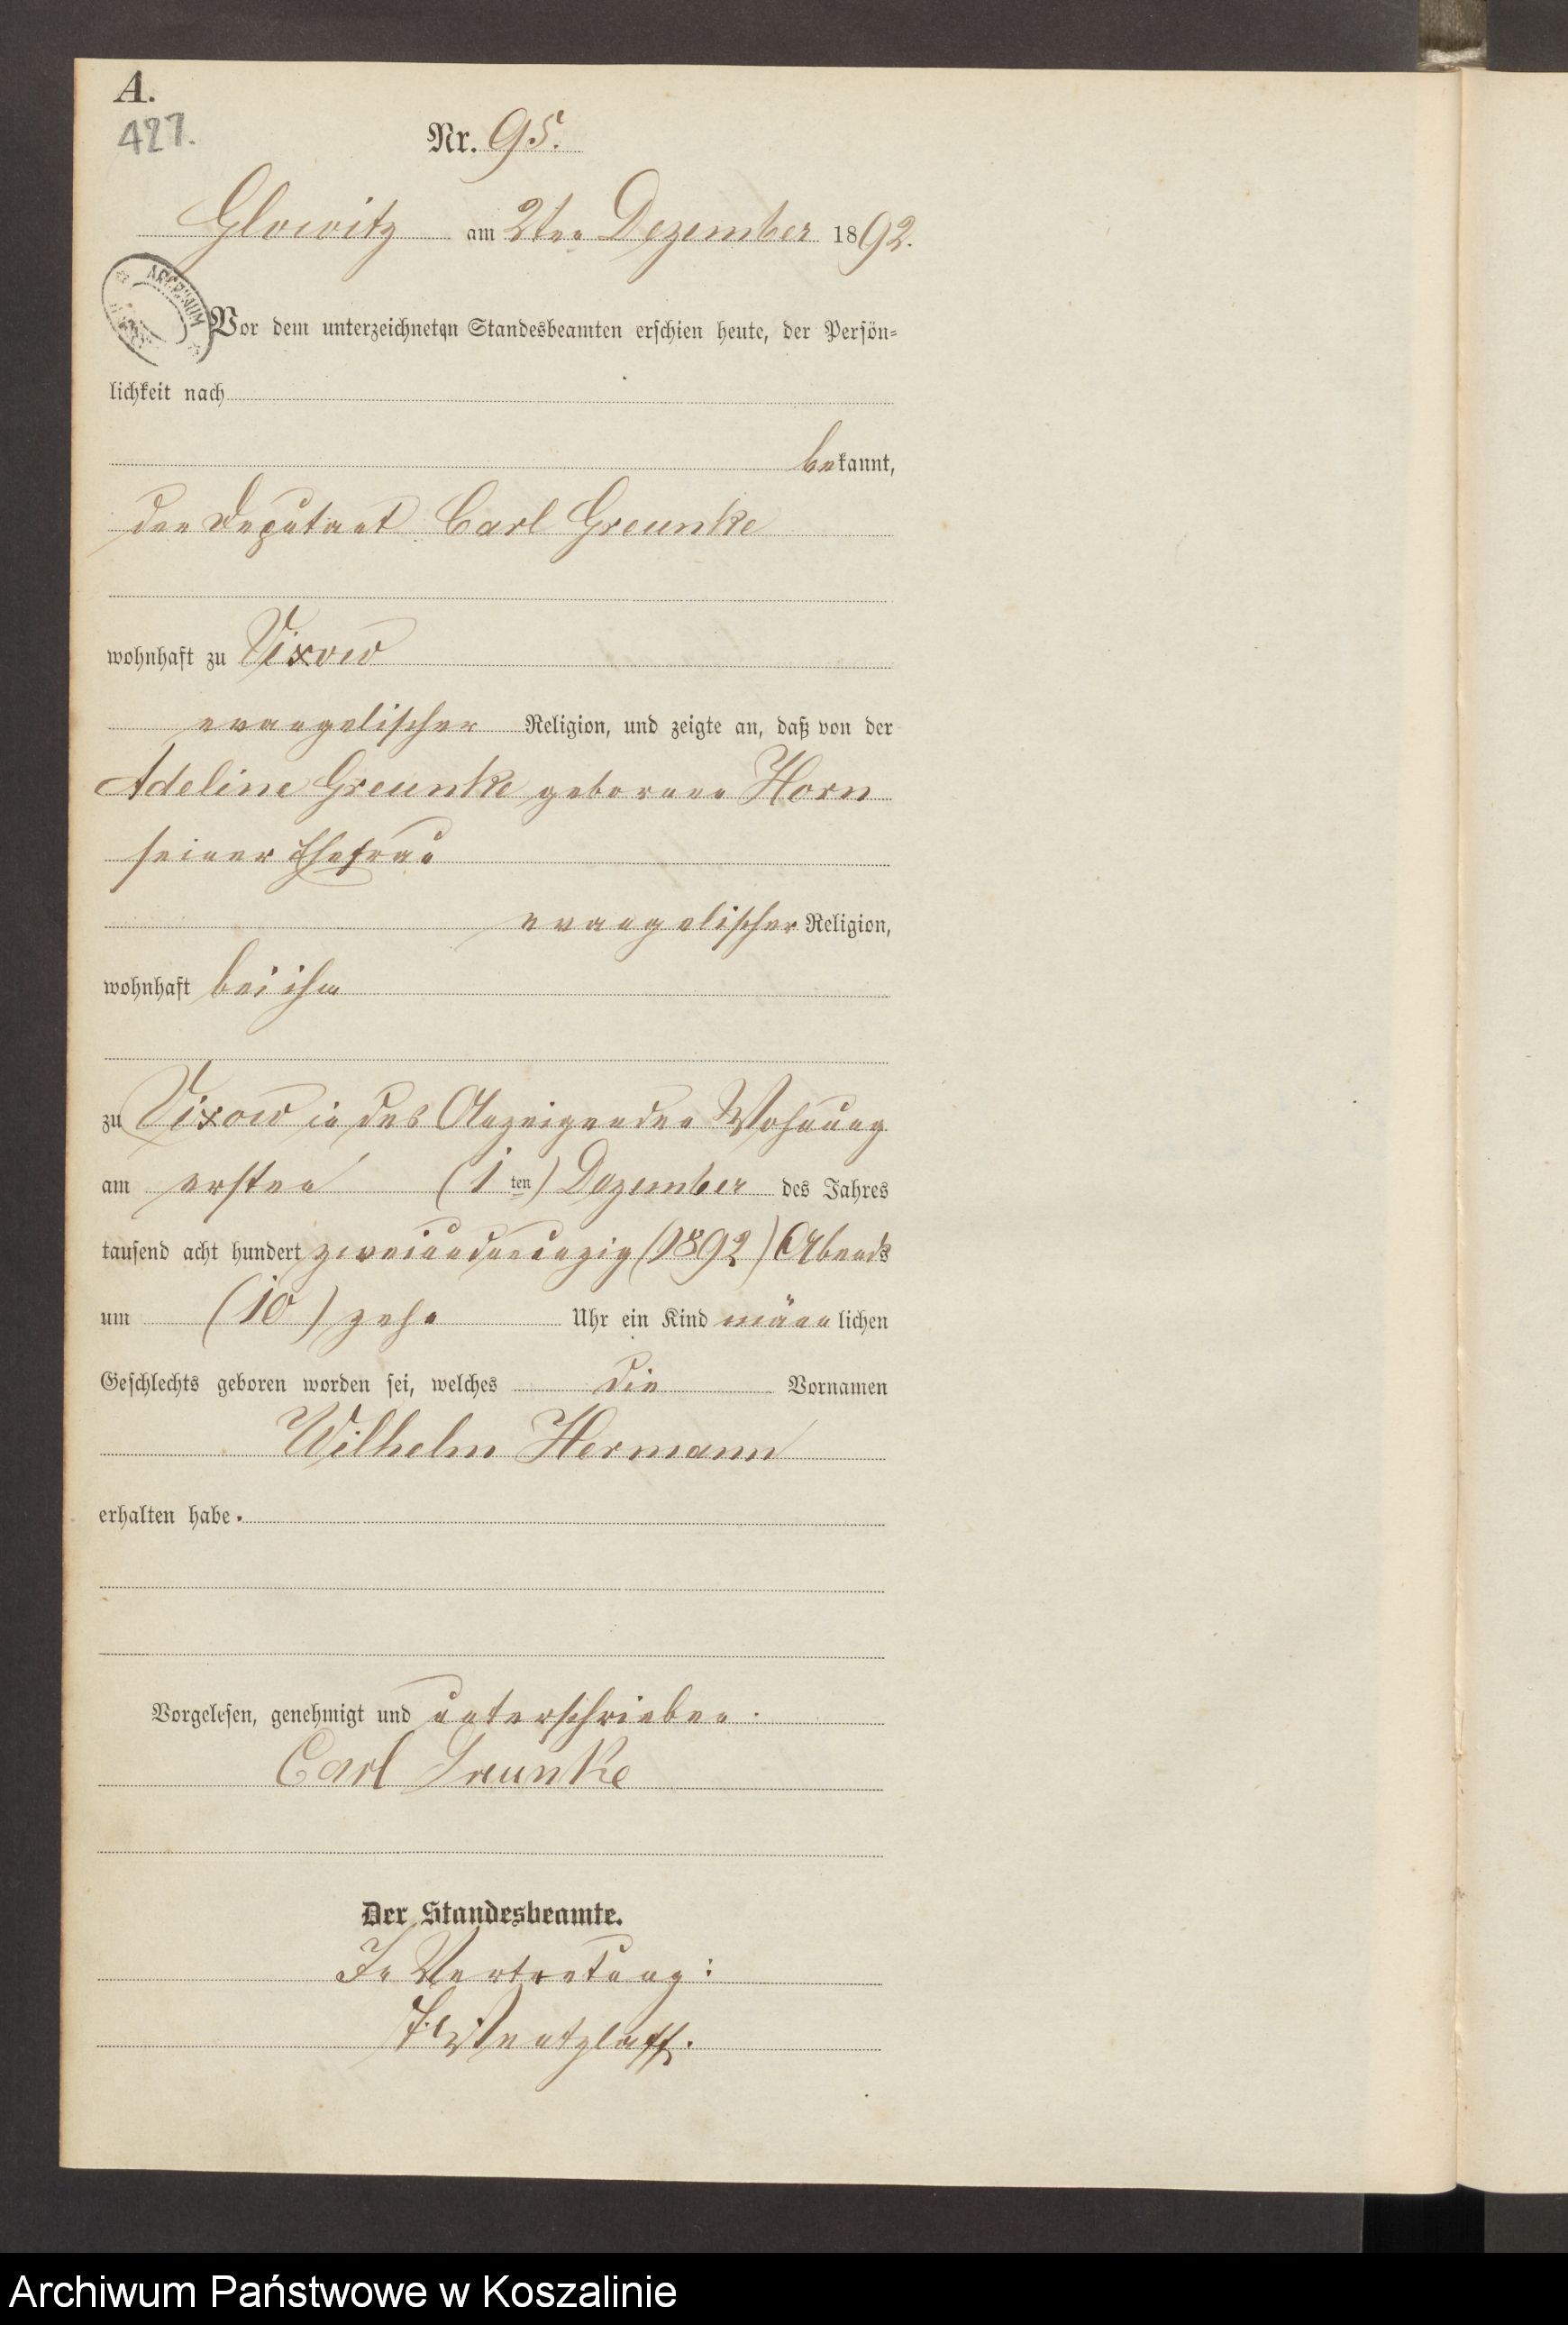 A.
427.
Nr. 95.
Glowitz am 2ten Dezember 1892.
ARCHIWUM
Vor dem unterzeichneten Standesbeamten erschien heute, der Persön-
lichkeit nach
bekannt,
der Deputant Carl Greunke
wohnhaft zu Vixow
evangelischer Religion, und zeigte an, daß von der
Adeline Greunke geborene Horn
seiner Ehefrau
evangelischer Religion,
wohnhaft bei ihm
zu Vixow in des Anzeigenden Wohnung
am ersten (1ten) Dezember des Jahres
tausend acht hundert zweiundneunzig (1892) Abends
um (10) zehn Uhr ein Kind männlichen
Geschlechts geboren worden sei, welches die Vornamen
Wilhelm Hermann
erhalten habe.
Vorgelesen, genehmigt und unterschrieben.
Carl Greunke
Der Standesbeamte.
In Vertretung:
Wentzlaff.
Archiwum Państwowe w Koszalinie